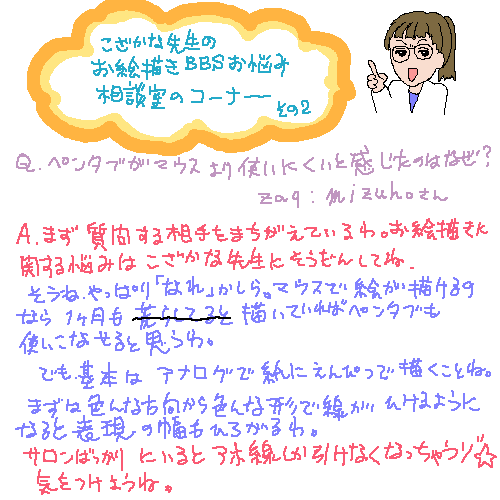 こざかな先生の
お絵描きBBSお悩み
相談室のコーナー
その2
Q.ペンタブがマウスより使いにくいと感じたのはなぜ?
zaq:mizuhoさん
A.まず質問する相手をまちがえているわ。お絵描きに
関する悩みはこざかな先生にそうだんしてね。
そうね、やっぱり「なれ」かしら。マウスで絵が描けるの
なら1ヶ月も荒らしてると描いていればペンタブも
使いこなせると思うわ。
でも基本はアナログで紙にえんぴつで描くことね。
まずは色んな方向から色んな形で線がひけるように
なると表現の幅もひろがるわ。
サロンばっかりにいるとアホ線しか引けなくなっちゃうゾ☆
気をつけようね。